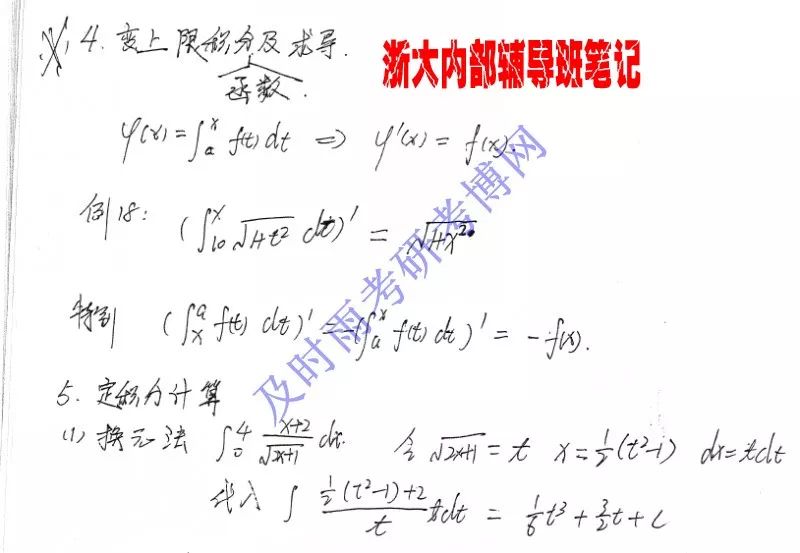 4. 变上限积分及求导.
函数.
浙大内部辅导班笔记
φ(x) = ∫ₐˣ f(t) dt ⇒ φ'(x) = f(x).
例18: (∫₁₀ˣ √(1+t²) dt)' = √(1+x²).
特别 (∫ₓᵃ f(t) dt)' = -(∫ₐˣ f(t) dt)' = -f(x).
5. 定积分计算
(1) 换元法 ∫₀⁴ (x+2)/√(2x+1) dx. 令 √(2x+1) = t x = ½(t²-1) dx = tdt
代入 ∫ (½(t²-1)+2)/t tdt = ⅙t³ + 3/2 t + C
及时雨考研考博网